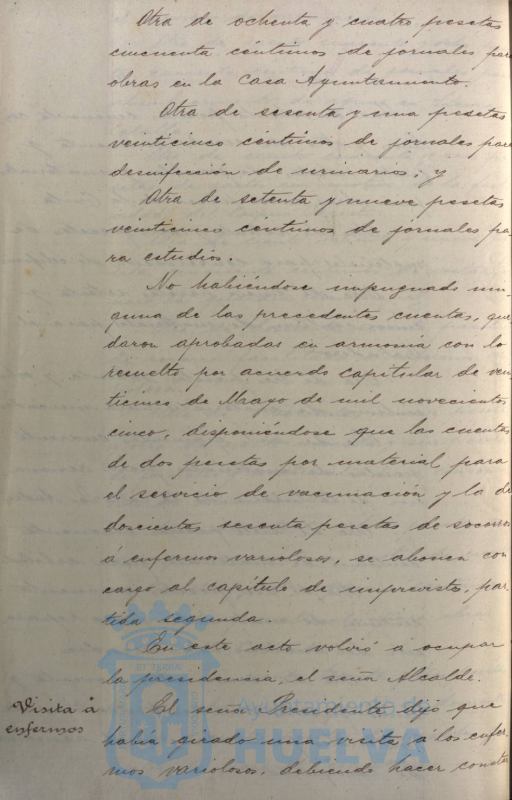 Otra de ochenta y cuatro pesetas
cincuenta céntimos de jornales para
obras en la Casa Ayuntamiento.
Otra de sesenta y una pesetas
veinticinco céntimos de jornales para
desinfección de urinarios; y
Otra de setenta y nueve pesetas
veinticinco céntimos de jornales pa-
ra estudios.
No habiéndose impugnado nin-
guna de las precedentes cuentas, que-
daron aprobadas en armonia con lo
resuelto por acuerdo capitular de vein-
ticinco de Mayo de mil novecientos
cinco, disponiéndose que las cuentas
de dos pesetas por material para
el servicio de vacunación y la de
doscientas sesenta pesetas de socorros
á enfermos variolosos, se abonen con
cargo al capítulo de imprevistos, par-
tida segunda.
En este acto volvió á ocupar
la presidencia el señor Alcalde.
Visita á
enfermos
El señor Presidente dijo que
había girado una visita á los enfer-
mos variolosos, debiendo hacer constar
Ayuntamiento de
HUELVA